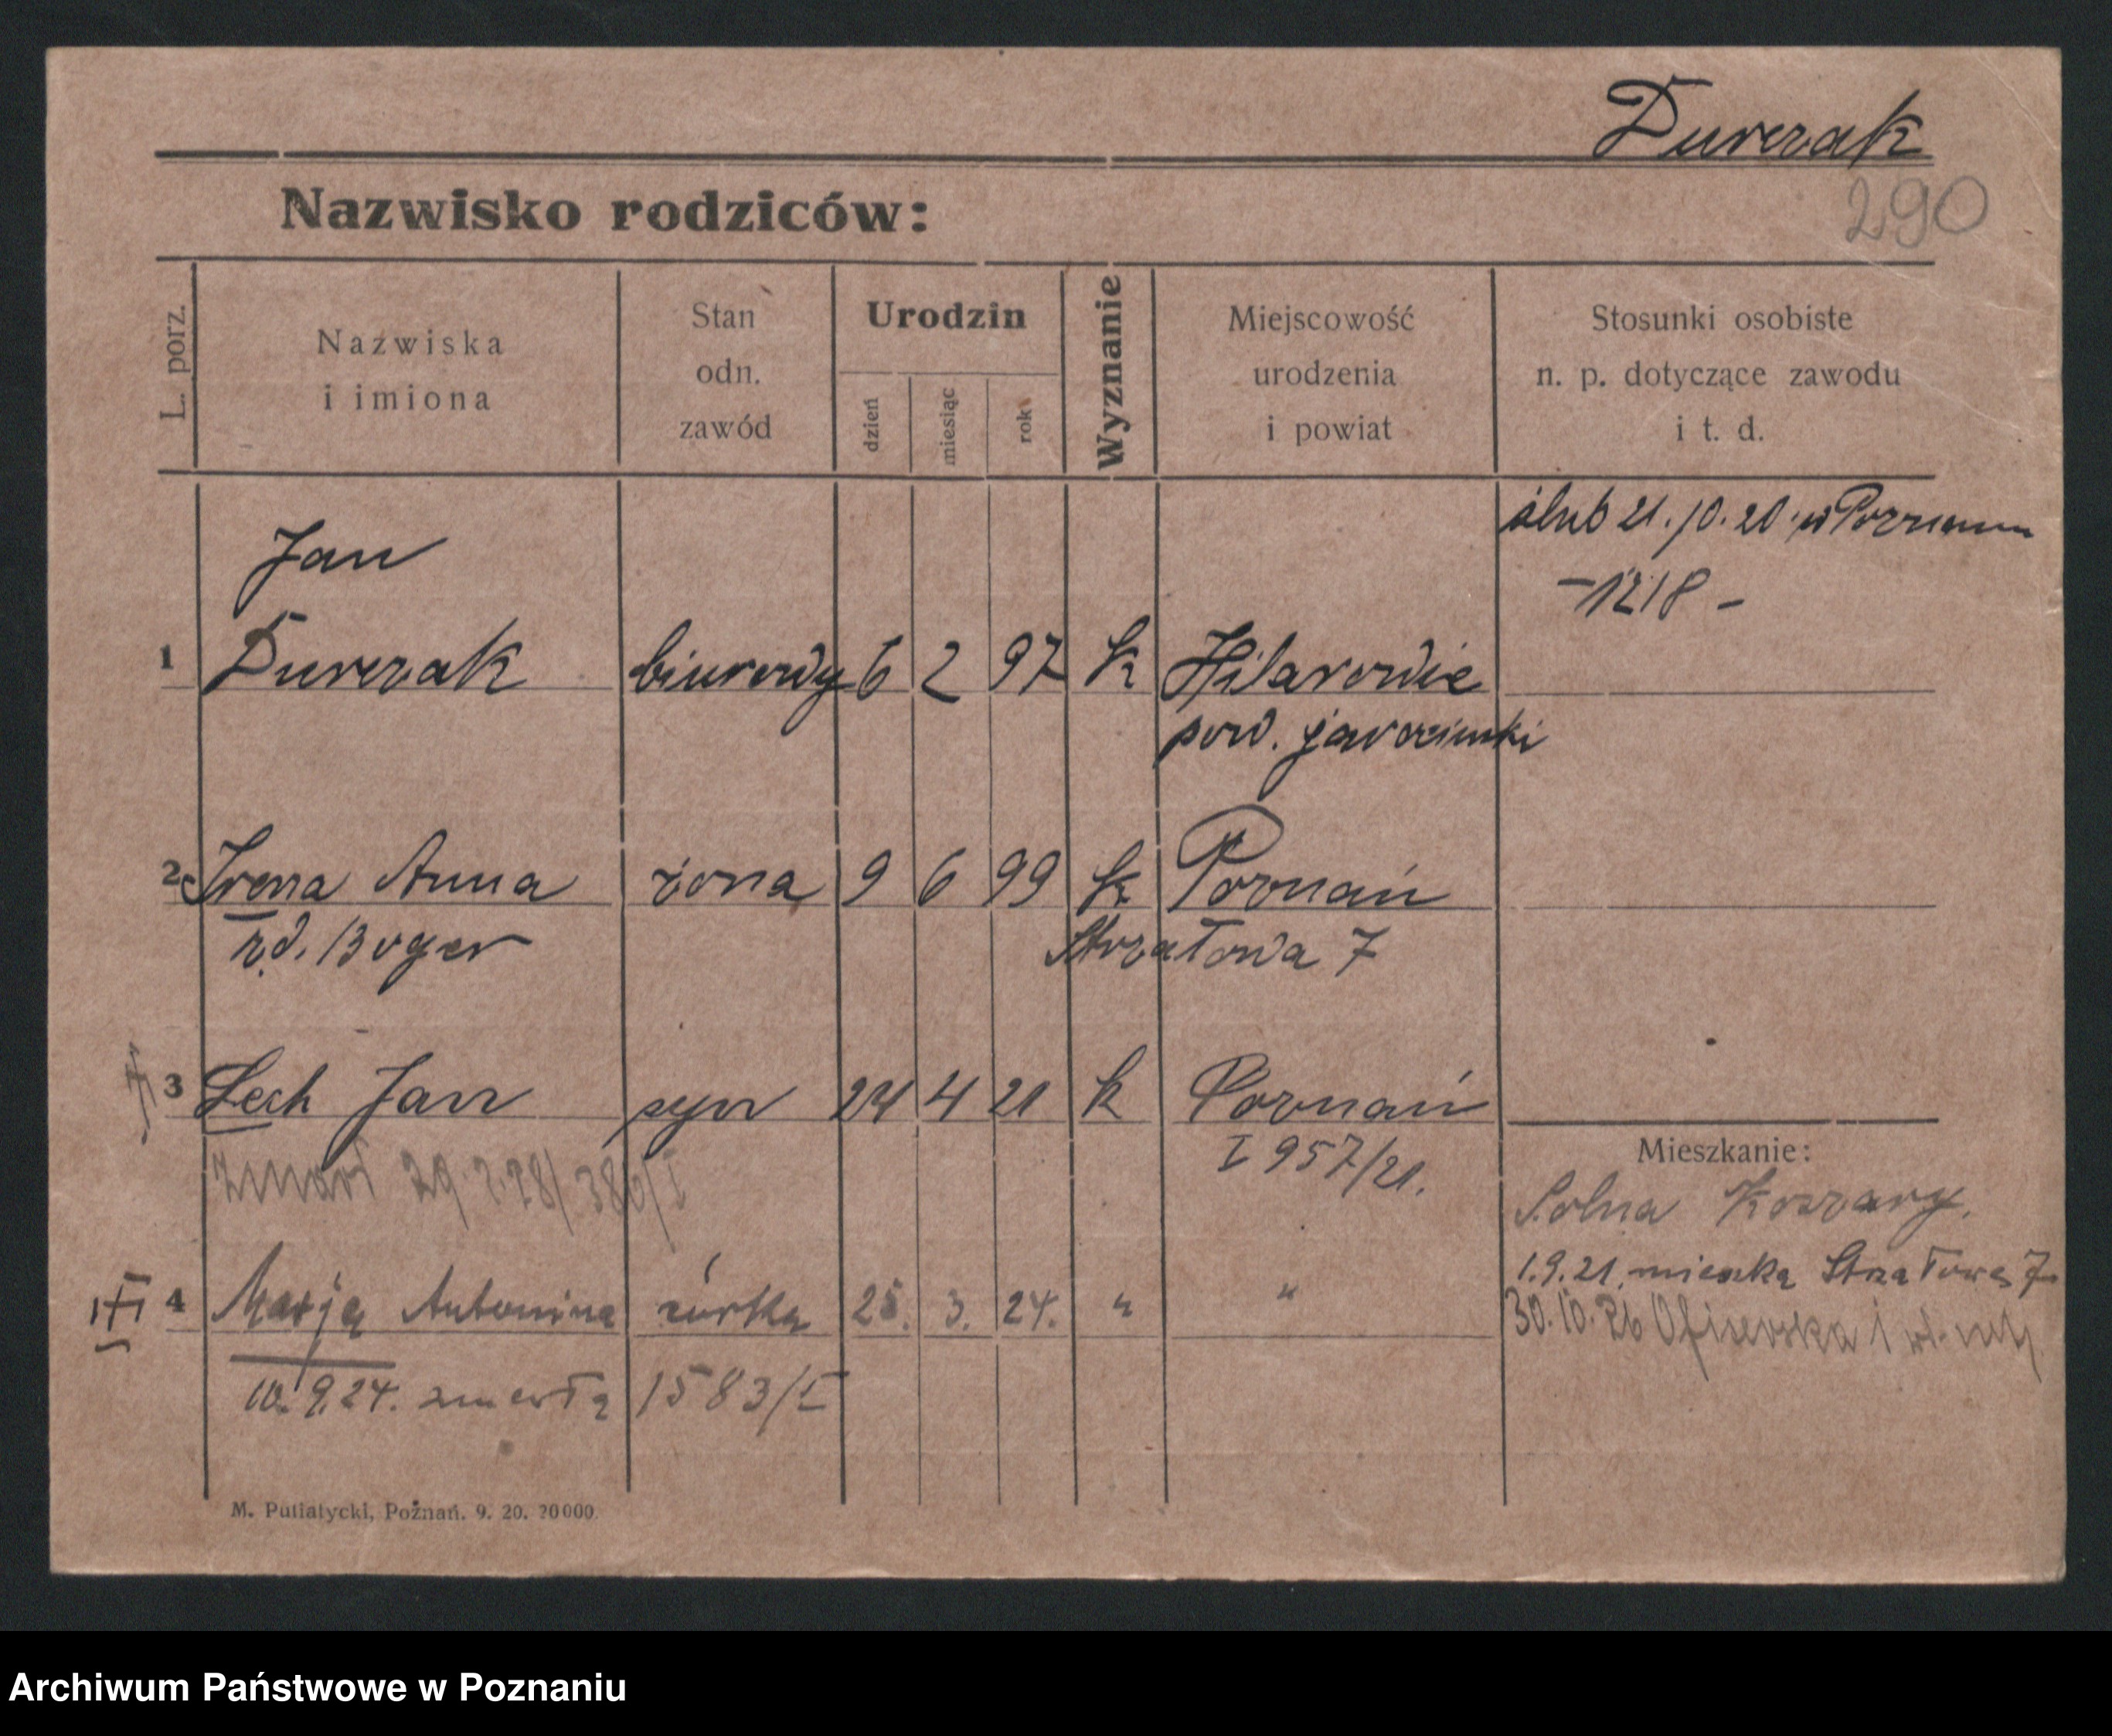 Durczak
290
Nazwisko rodziców:
L. porz.
Nazwiska
i imiona
Stan
odn.
zawód
Urodzin
dzień
miesiąc
rok
Wyznanie
Miejscowość
urodzenia
i powiat
Stosunki osobiste
n. p. dotyczące zawodu
i t. d.
ślub 21.10.20 w Poznaniu
-1218-
Jan
1 Durczak biurowy 6 2 97 k Hilarowie
pow. jarociński
2 Irena Anna żona 9 6 99 k Poznań
Strzałowa 7
3 Lech Jan syn 24 4 21 k Poznań
I 957/21.
zmarł 29. 28/386/I
Mieszkanie:
Solna Koszary.
1.9.21. mieszka Strzałowa 7
4 Marja Antonina córka 25. 3. 24. " "
30.10.26
10.9.24. zmarła 1583/I
M. Putiatycki, Poznań. 9. 20. 20000.
Archiwum Państwowe w Poznaniu